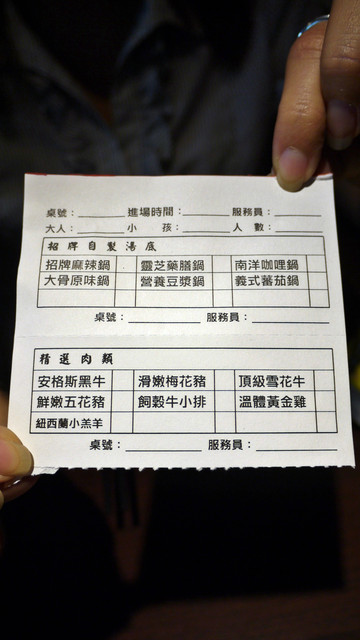 桌號：______ 進場時間：______ 服務員：______
大人：______ 小　孩：______ 人　數：______
招牌自製湯底
招牌麻辣鍋 靈芝藥膳鍋 南洋咖哩鍋
大骨原味鍋 營養豆漿鍋 義式蕃茄鍋
桌號：______ 服務員：______
精選肉類
安格斯黑牛 滑嫩梅花豬 頂級雪花牛
鮮嫩五花豬 飼穀牛小排 溫體黃金雞
紐西蘭小羔羊
桌號：______ 服務員：______